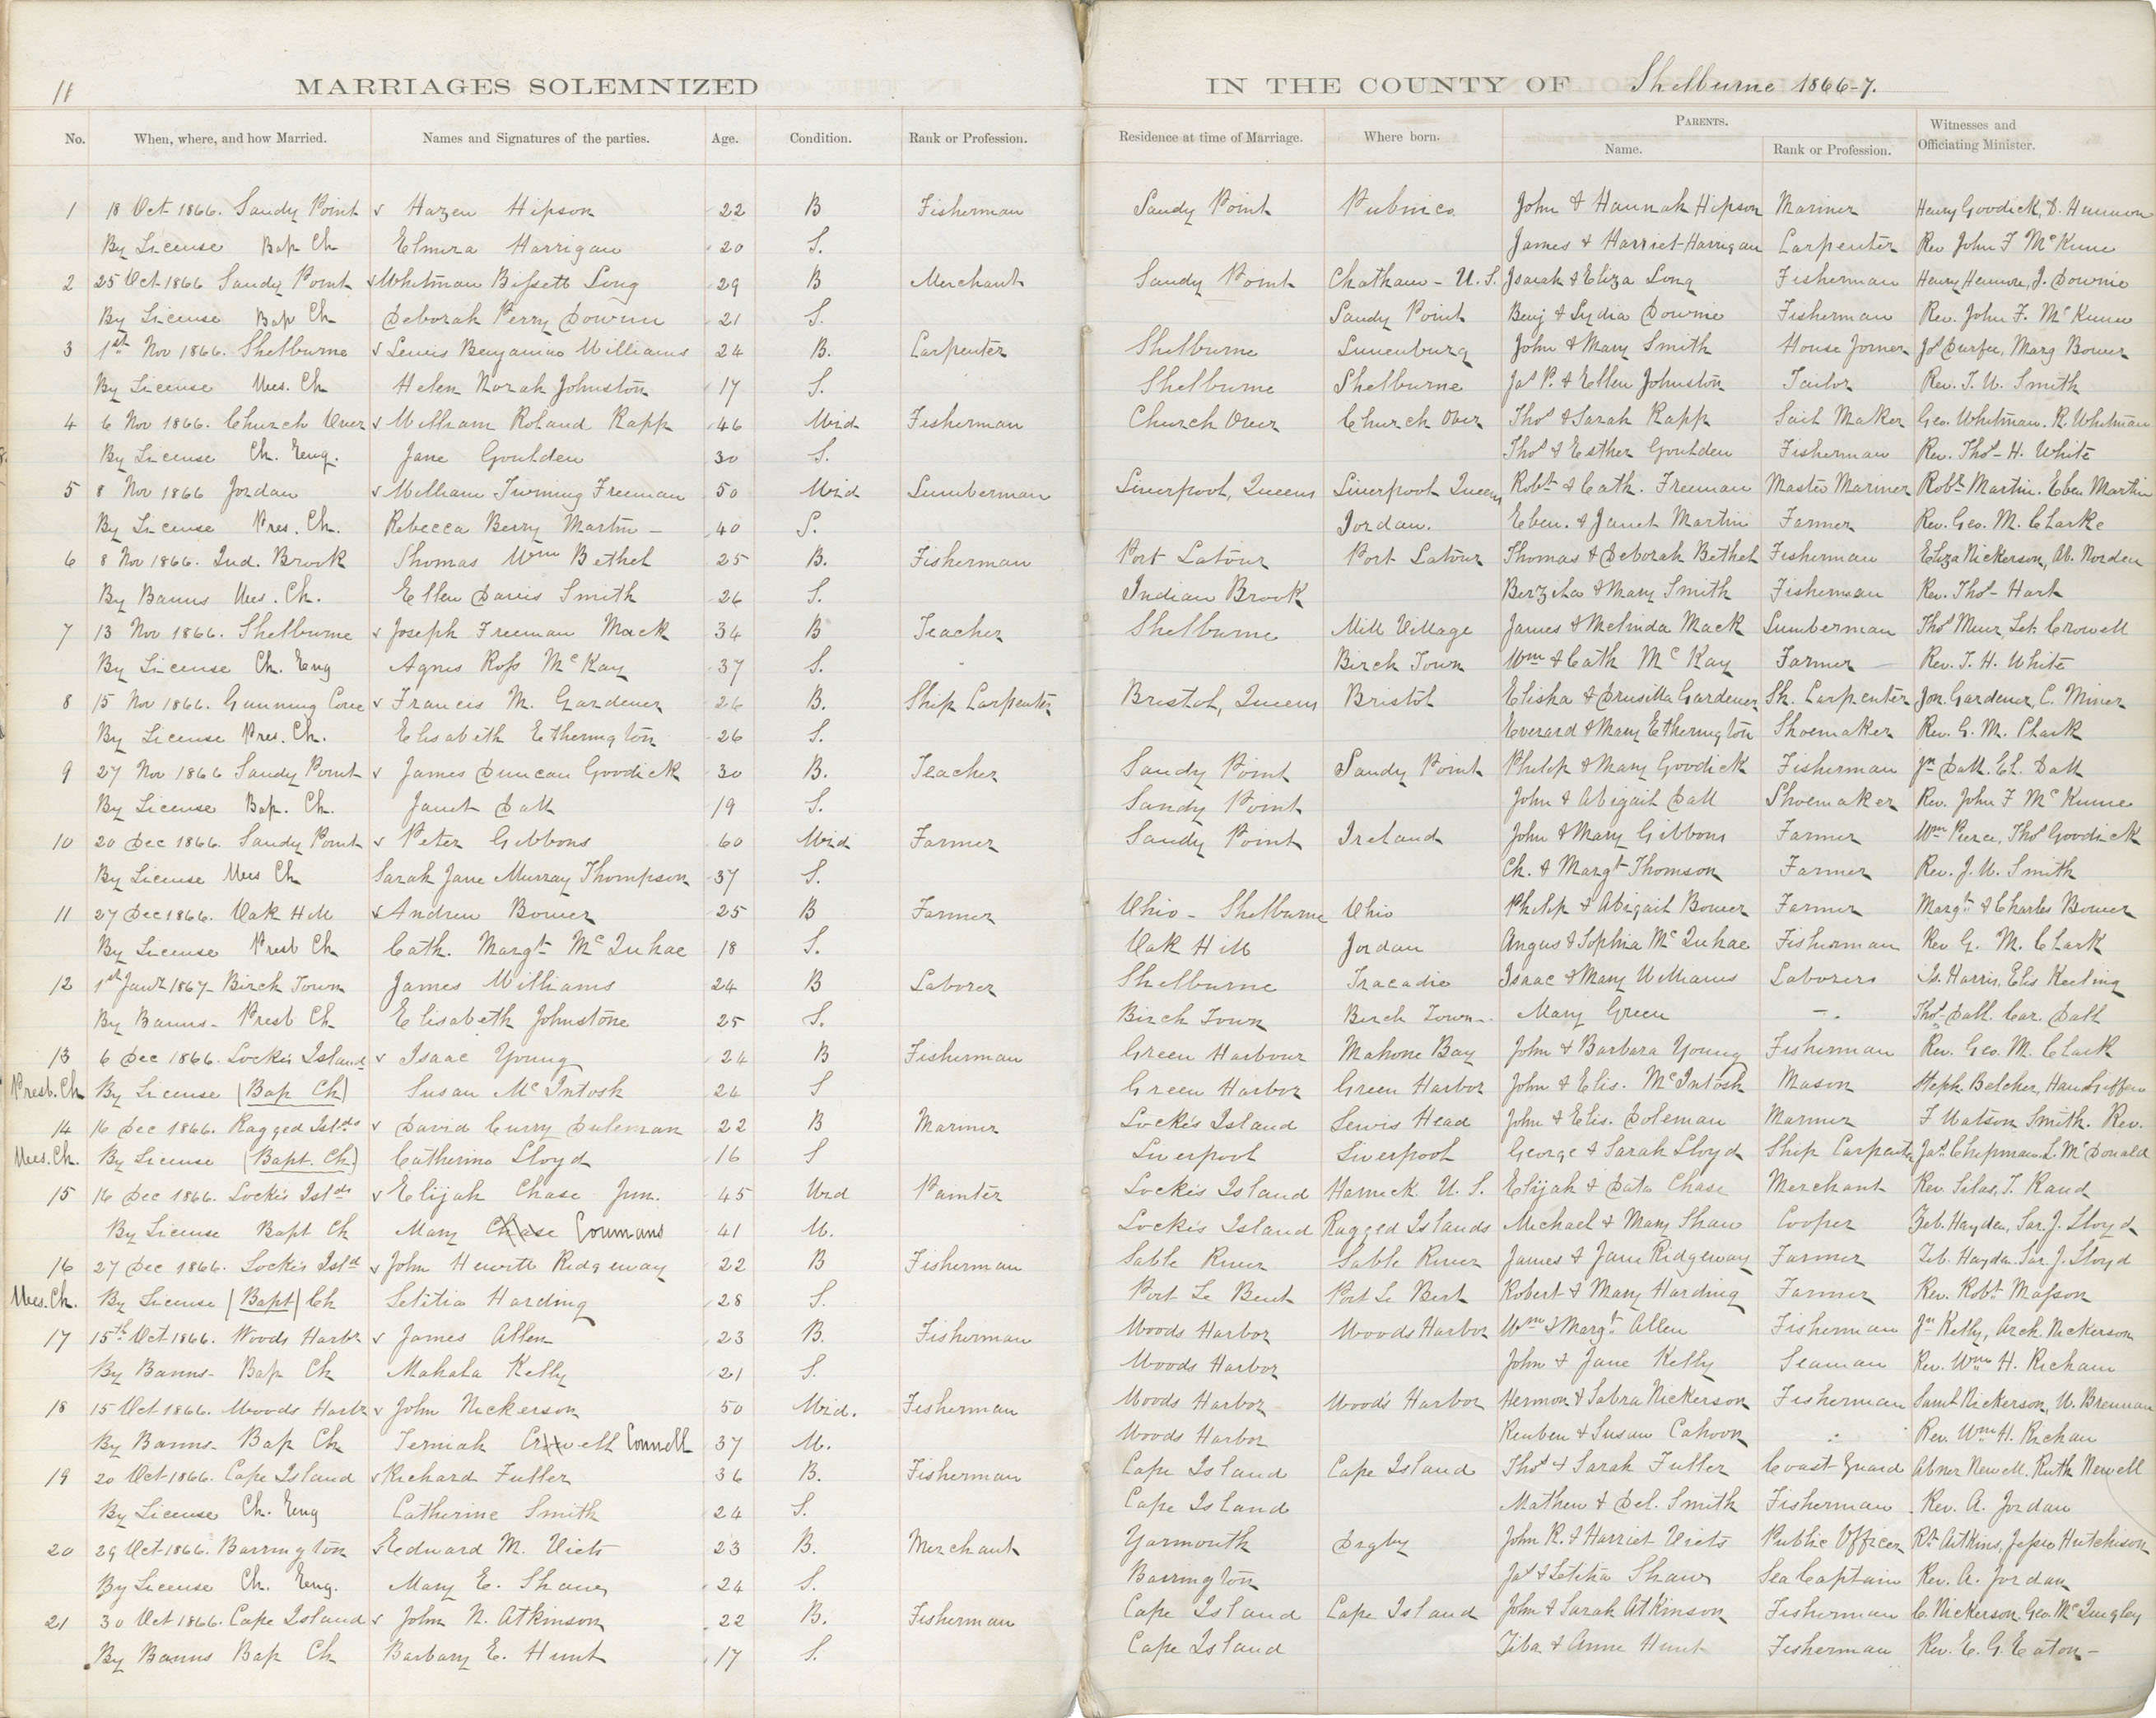 11 MARRIAGES SOLEMNIZED IN THE COUNTY OF Shelburne 1866-7.
No. When, where, and how Married. Names and Signatures of the parties. Age. Condition. Rank or Profession. Residence at time of Marriage. Where born. PARENTS. Name. Rank or Profession. Witnesses and Officiating Minister.
1 18 Oct 1866. Sandy Point Hazen Hipson 22 B Fisherman Sandy Point Pubnico John & Hannah Hipson Mariner Henry Goodick, D.
By License Bap Ch Elmira Harrigan 20 S. James & Harriet Harrigan Carpenter Rev John F McKune
2 25 Oct 1866 Sandy Point Whitman Bissett Long 29 B Merchant Sandy Point Chatham - U.S. Isaiah & Eliza Long Fisherman Henry J. Downie
By License Bap Ch Deborah Perry 21 S. Sandy Point Benj & Lydia Downie Fisherman Rev. John F. McKune
3 1st Nov 1866. Shelburne Lewis Benjamin Williams 24 B. Carpenter Shelburne Lunenburg John & Mary Smith House Joiner Jos Durfee, Marg Bower
By License Wes. Ch Helen Norah Johnston 17 S. Shelburne Shelburne Jas P. & Ellen Johnston Tailor Rev. T. W. Smith
4 6 Nov 1866. Church Over William Roland Rapp 46 Wid Fisherman Church Over Church Over Thos & Sarah Rapp Sail Maker Geo. Whitman. R. Whitman
By License Ch. Eng. Jane Goulden 30 S. Thos & Esther Goulden Fisherman Rev. Thos- H. White
5 8 Nov 1866 Jordan William Twining Freeman 50 Wid Lumberman Liverpool, Queens Liverpool Queens Robt & Cath. Freeman Master Mariner Robt Martin. Eben Martin
By License Pres. Ch. Rebecca Berry Martin - 40 S. Jordan. Eben. & Janet Martin Farmer Rev. Geo. M. Clarke
6 8 Nov 1866. Ind. Brook Thomas Wm Bethel 25 B. Fisherman Port Latour Port Latour Thomas & Deborah Bethel Fisherman Eliza Nickerson, Ab. Norden
By Banns Wes. Ch. Ellen Davis Smith 26 S. Indian Brook & Mary Smith Fisherman Rev. Thos- Hart
7 13 Nov 1866. Shelburne Joseph Freeman Mack 34 B Teacher Shelburne Mill Village James & Melinda Mack Lumberman Thos Muir, Let. Crowell
By License Ch. Eng Agnes Ross McKay 37 S. Birch Town Wm & Cath McKay Farmer Rev. T. H. White
8 15 Nov 1866. Gunning Cove Francis M. Gardener 26 B. Ship Carpenter Bristol, Queens Bristol Elisha & Drusilla Gardener Sh. Carpenter Jon. Gardener, C. Miner
By License Pres. Ch. Elisabeth Etherington 26 S. Everard & Mary Etherington Shoemaker Rev. G. M. Clark
9 27 Nov 1866 Sandy Point James Duncan Goodick 30 B. Teacher Sandy Point Sandy Point Philip & Mary Goodick Fisherman Jn Dall. Ch. Dall
By License Bap. Ch. Janet Dall 19 S. Sandy Point John & Abigail Dall Shoemaker Rev. John F McKune
10 20 Dec 1866. Sandy Point Peter Gibbons 60 Wid Farmer Sandy Point Ireland John & Mary Gibbons Farmer Wm Pierce, Thos Goodick
By License Wes Ch Sarah Jane Murray Thompson 37 S. Ch. & Margt Thomson Farmer Rev. J. W. Smith
11 27 Dec 1866. Oak Hill Andrew Bower 25 B Farmer Ohio - Shelburne Ohio Philip & Abigail Bower Farmer Margt & Charles Bower
By License Presb Ch Cath. Margt McQuhae 18 S. Oak Hill Jordan Angus & Sophia McQuhae Fisherman Rev G. M. Clark
12 1st Janr 1867- Birch Town James Williams 24 B Laborer Shelburne Tracadie Isaac & Mary Williams Laborers Is. Harris, Elis Keeling
By Banns- Presb Ch Elisabeth Johnstone 25 S. Birch Town Birch Town- Mary Green -. Thos- Dall. Car. Dall
13 6 Dec 1866. Locke's Island Isaac Young 24 B Fisherman Green Harbour Mahone Bay John & Barbara Young Fisherman Rev. Geo. M. Clark
Presb. Ch By License (Bap Ch) Susan McIntosh 26 S Green Harbor Green Harbor John & Elis. McIntosh Mason Steph. Belcher, Han Giffen
14 16 Dec 1866. Ragged Islds David Curry Duleman 22 B Mariner Locke's Island Lewis Head John & Elis. Doleman Mariner F Watson Smith. Rev.
Wes. Ch. By License (Bapt. Ch) Catherine Lloyd 16 S Liverpool Liverpool George & Sarah Lloyd Ship Carpenter Jas. Chipman L. McDonald
15 16 Dec 1866. Locke's Islds Elijah Chase Jun. 45 Wid Painter Locke's Island Harwick U.S. Elijah & Data Chase Merchant Rev. Silas, T. Rand
By License Bapt Ch Mary Chase Coumans 41 W. Locke's Island Ragged Islands Michael & Mary Shaw Cooper Zeb. Hayden, Sar. J. Lloyd
16 27 Dec 1866. Locke's Isld John Hewitt Ridgeway 22 B Fisherman Sable River Sable River James & Jane Ridgeway Farmer Zeb. Hayden. Sar. J. Lloyd
Wes. Ch. By License (Bapt) Ch Letitia Harding 28 S. Port Le Bert Port Le Bert Robert & Mary Harding Farmer Rev. Robt Masson
17 15th Oct 1866. Woods Harbr James Allen 23 B. Fisherman Woods Harbor Woods Harbor Wm & Margt Allen Fisherman Jn Kelly, Arch. Nickerson
By Banns- Bap Ch Mahala Kelly 21 S. Woods Harbor John & Jane Kelly Seaman Rev. Wm H. Richan
18 15 Oct 1866. Woods Harbr John Nickerson 50 Wid. Fisherman Woods Harbor Woods Harbor Hermon & Sabra Nickerson Fisherman Saml Nickerson, W. Brennan
By Banns- Bap Ch Crowell Connell 37 W. Woods Harbor Reuben & Susan Cahoon Rev. Wm H. Richan
19 20 Oct 1866. Cape Island Richard Fuller 36 B. Fisherman Cape Island Cape Island Thos & Sarah Fuller Coast Guard Abner Newell. Ruth Newell
By License Ch. Eng Catherine Smith 24 S. Cape Island Mathew & Del. Smith Fisherman Rev. A. Jordan
20 29 Oct 1866. Barrington Edward M. Viets 23 B. Merchant Yarmouth Digby John R. & Harriet Viets Public Officer Rt Aitkins, Jessie Hutchison
By License Ch. Eng. Mary E. Shaw 24 S. Barrington Jas & Letitia Shaw Sea Captain Rev. A. Jordan
21 30 Oct 1866. Cape Island John N. Atkinson 22 B. Fisherman Cape Island Cape Island John & Sarah Atkinson Fisherman C. Nickerson. Geo.
By Banns Bap Ch Barbary E. Hunt 17 S. Cape Island Tiba & Anne Hunt Fisherman Rev. E. G. Eaton-